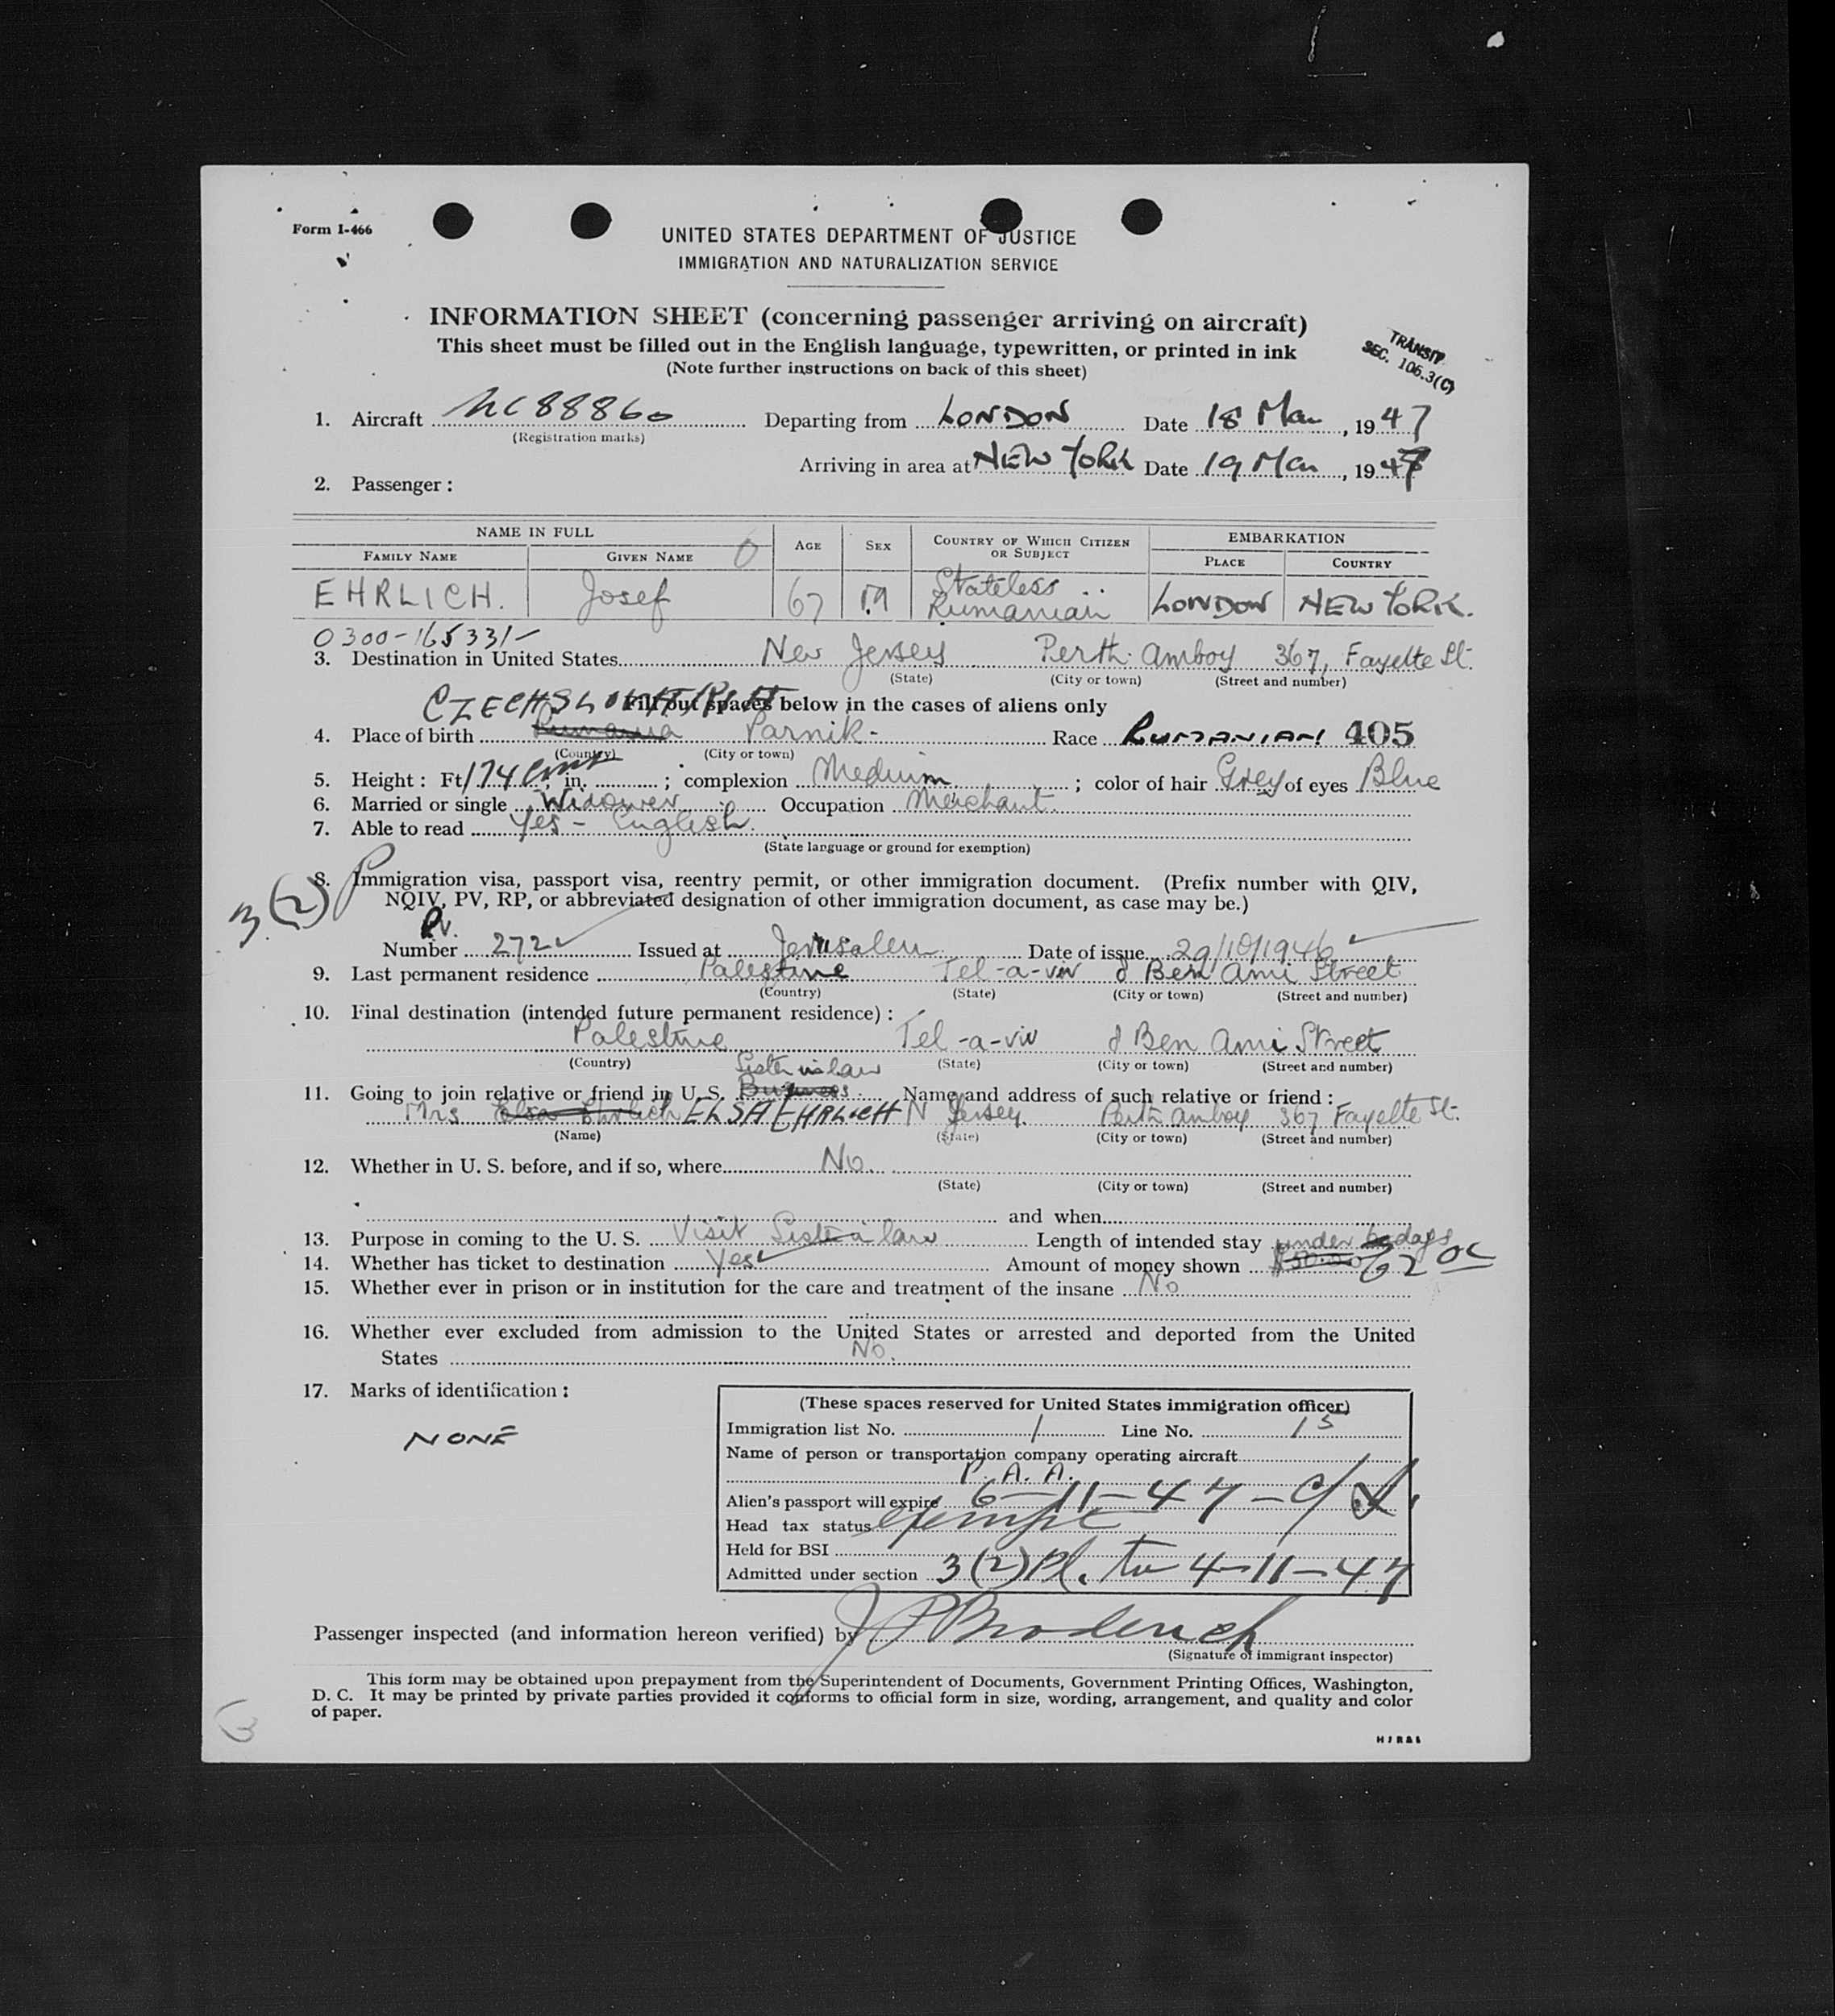 Form I-466
UNITED STATES DEPARTMENT OF JUSTICE
IMMIGRATION AND NATURALIZATION SERVICE
INFORMATION SHEET (concerning passenger arriving on aircraft)
This sheet must be filled out in the English language, typewritten, or printed in ink
(Note further instructions on back of this sheet)
TRANSIT
SEC. 106.3(C)
1. Aircraft NC88860 Departing from LONDON Date 18 Mar, 1947
(Registration marks)
Arriving in area at NEW YORK Date 19 Mar, 1947
2. Passenger:
NAME IN FULL AGE SEX COUNTRY OF WHICH CITIZEN OR SUBJECT EMBARKATION
FAMILY NAME GIVEN NAME PLACE COUNTRY
EHRLICH. Josef 67 M Stateless Rumanian LONDON NEW YORK.
0300-165331/-
3. Destination in United States New Jersey Perth Amboy 367, Fayette St.
(State) (City or town) (Street and number)
Fill out spaces below in the cases of aliens only
4. Place of birth Rumania Parnik - Race RUMANIAN 405
(Country) (City or town)
5. Height: Ft. 174 cmt, in. ; complexion Medium ; color of hair Grey of eyes Blue
6. Married or single Widower Occupation Merchant.
7. Able to read Yes - English.
(State language or ground for exemption)
3(2) P
8. Immigration visa, passport visa, reentry permit, or other immigration document. (Prefix number with QIV,
NQIV, PV, RP, or abbreviated designation of other immigration document, as case may be.)
PV.
Number 272 Issued at Jerusalem Date of issue 29/10/1946
9. Last permanent residence Palestine Tel-a-viv 8 Ben Ami Street
(Country) (State) (City or town) (Street and number)
10. Final destination (intended future permanent residence):
Palestine Tel-a-viv 8 Ben Ami Street
(Country) (State) (City or town) (Street and number)
Sister in law
11. Going to join relative or friend in U. S. Business. Name and address of such relative or friend:
Mrs Elsa Ehrlich ELSA EHRLICH N Jersey. Perth Amboy 367 Fayette St.
(Name) (State) (City or town) (Street and number)
12. Whether in U. S. before, and if so, where No.
(State) (City or town) (Street and number)
and when
13. Purpose in coming to the U. S. Visit Sister in law Length of intended stay under 60 days
14. Whether has ticket to destination Yes Amount of money shown 62 00
15. Whether ever in prison or in institution for the care and treatment of the insane No
16. Whether ever excluded from admission to the United States or arrested and deported from the United
States No.
17. Marks of identification:
NONE
(These spaces reserved for United States immigration officer)
Immigration list No. 1 Line No. 15
Name of person or transportation company operating aircraft
P. A. A.
Alien's passport will expire 6-11-47
Head tax status exempt
Held for BSI
Admitted under section 3(2) Pl. to 4-11-47
Passenger inspected (and information hereon verified) by J P Broderick
(Signature of immigrant inspector)
This form may be obtained upon prepayment from the Superintendent of Documents, Government Printing Offices, Washington,
D. C. It may be printed by private parties provided it conforms to official form in size, wording, arrangement, and quality and color
of paper.